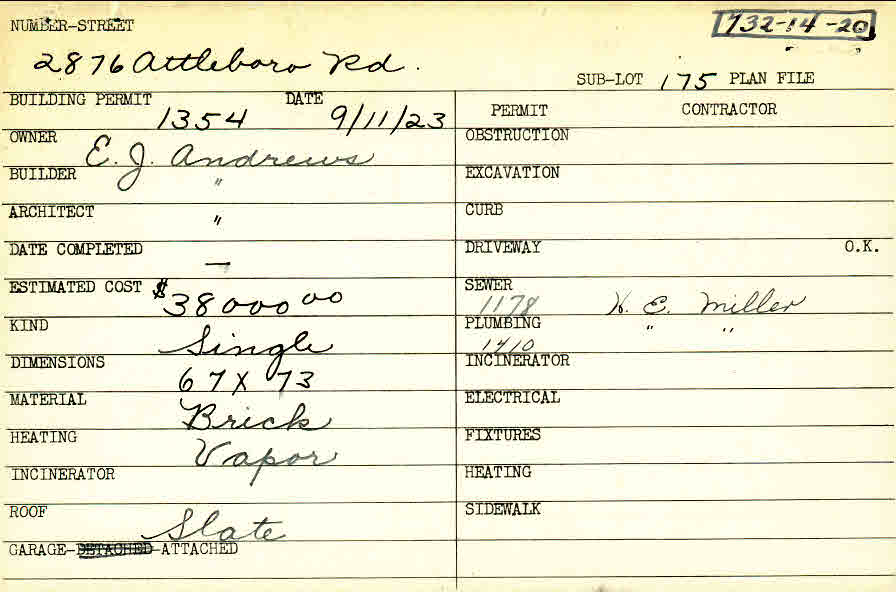 NUMBER-STREET
732-14-20
2876 Attleboro Rd.
SUB-LOT 175 PLAN FILE
BUILDING PERMIT 1354 DATE 9/11/23
OWNER E. J. Andrews
BUILDER "
ARCHITECT "
DATE COMPLETED —
ESTIMATED COST $38000 00
KIND Single
DIMENSIONS 67 X 73
MATERIAL Brick
HEATING Vapor
INCINERATOR
ROOF Slate
GARAGE-DETACHED-ATTACHED
PERMIT CONTRACTOR
OBSTRUCTION
EXCAVATION
CURB
DRIVEWAY O.K.
SEWER 1178 H. E. Miller
PLUMBING 1410 " "
INCINERATOR
ELECTRICAL
FIXTURES
HEATING
SIDEWALK